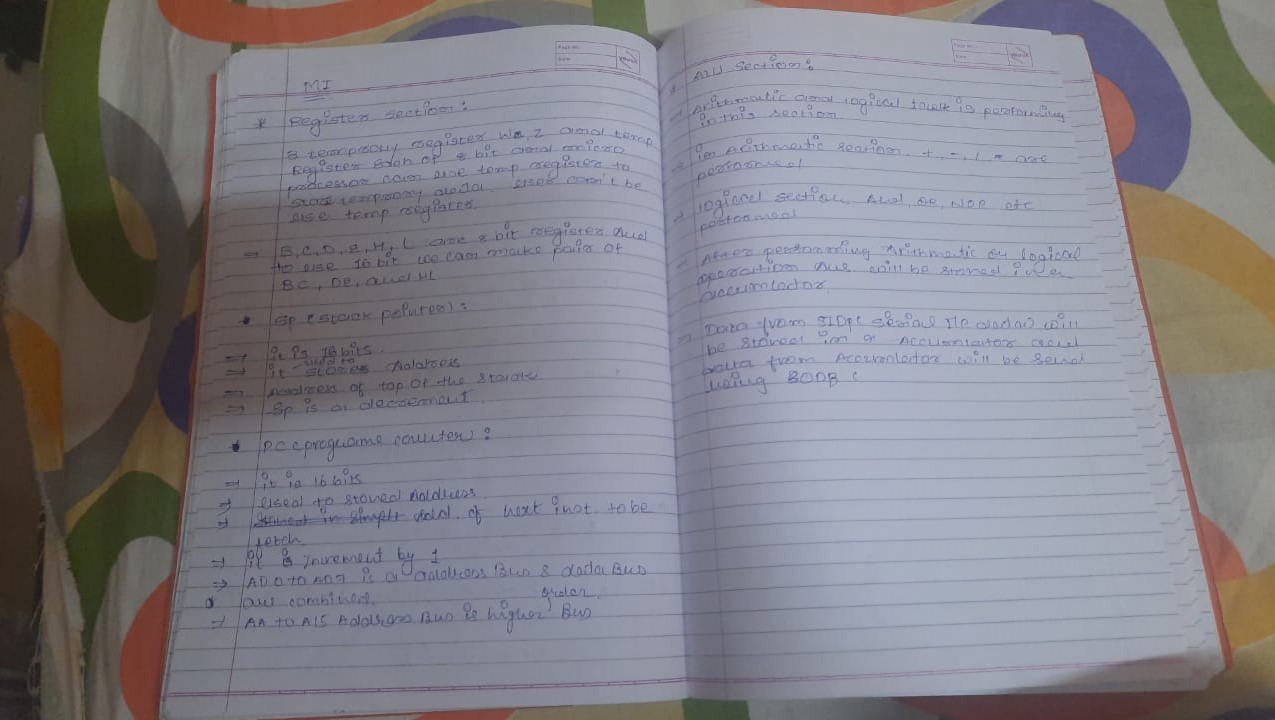 MI
* Register section :
2 temprory register W, Z and temp
Register Each of 8 bit and micro
processor can use temp register to
store temprory data. User can't be
use temp register.
→ B, C, D, E, H, L are 8 bit register And
to use 16 bit we can make pair of
BC, DE, and HL
* Sp (stack pointer) :
⇒ it is 16 bits.
used to
⇒ it stores Address
⇒ Address of top of the stack
⇒ Sp is a decrement.
* PC (programe counter) :
⇒ it is 16 bits
⇒ Used to stored Address
⇒ Add. of next inst. to be
fetch
⇒ it is Increment by 1
⇒ AD0 to AD7 is a address Bus & data Bus
are combined.
order
⇒ to A15 Address Bus is higher Bus
Page No.:
Date:
ALU section :
→ Arithmatic and logical task is performing
in this section
→ in Arithmatic section +, -, are
performed
→ logical section, And, OR, etc
performed
→ After performing Arithmatic or logical
operation will be stored in
accumlator.
→ Data from serial data) will
be stored in a Accumlator and
data from Accumlator will be send
using
Page No.:
Date: